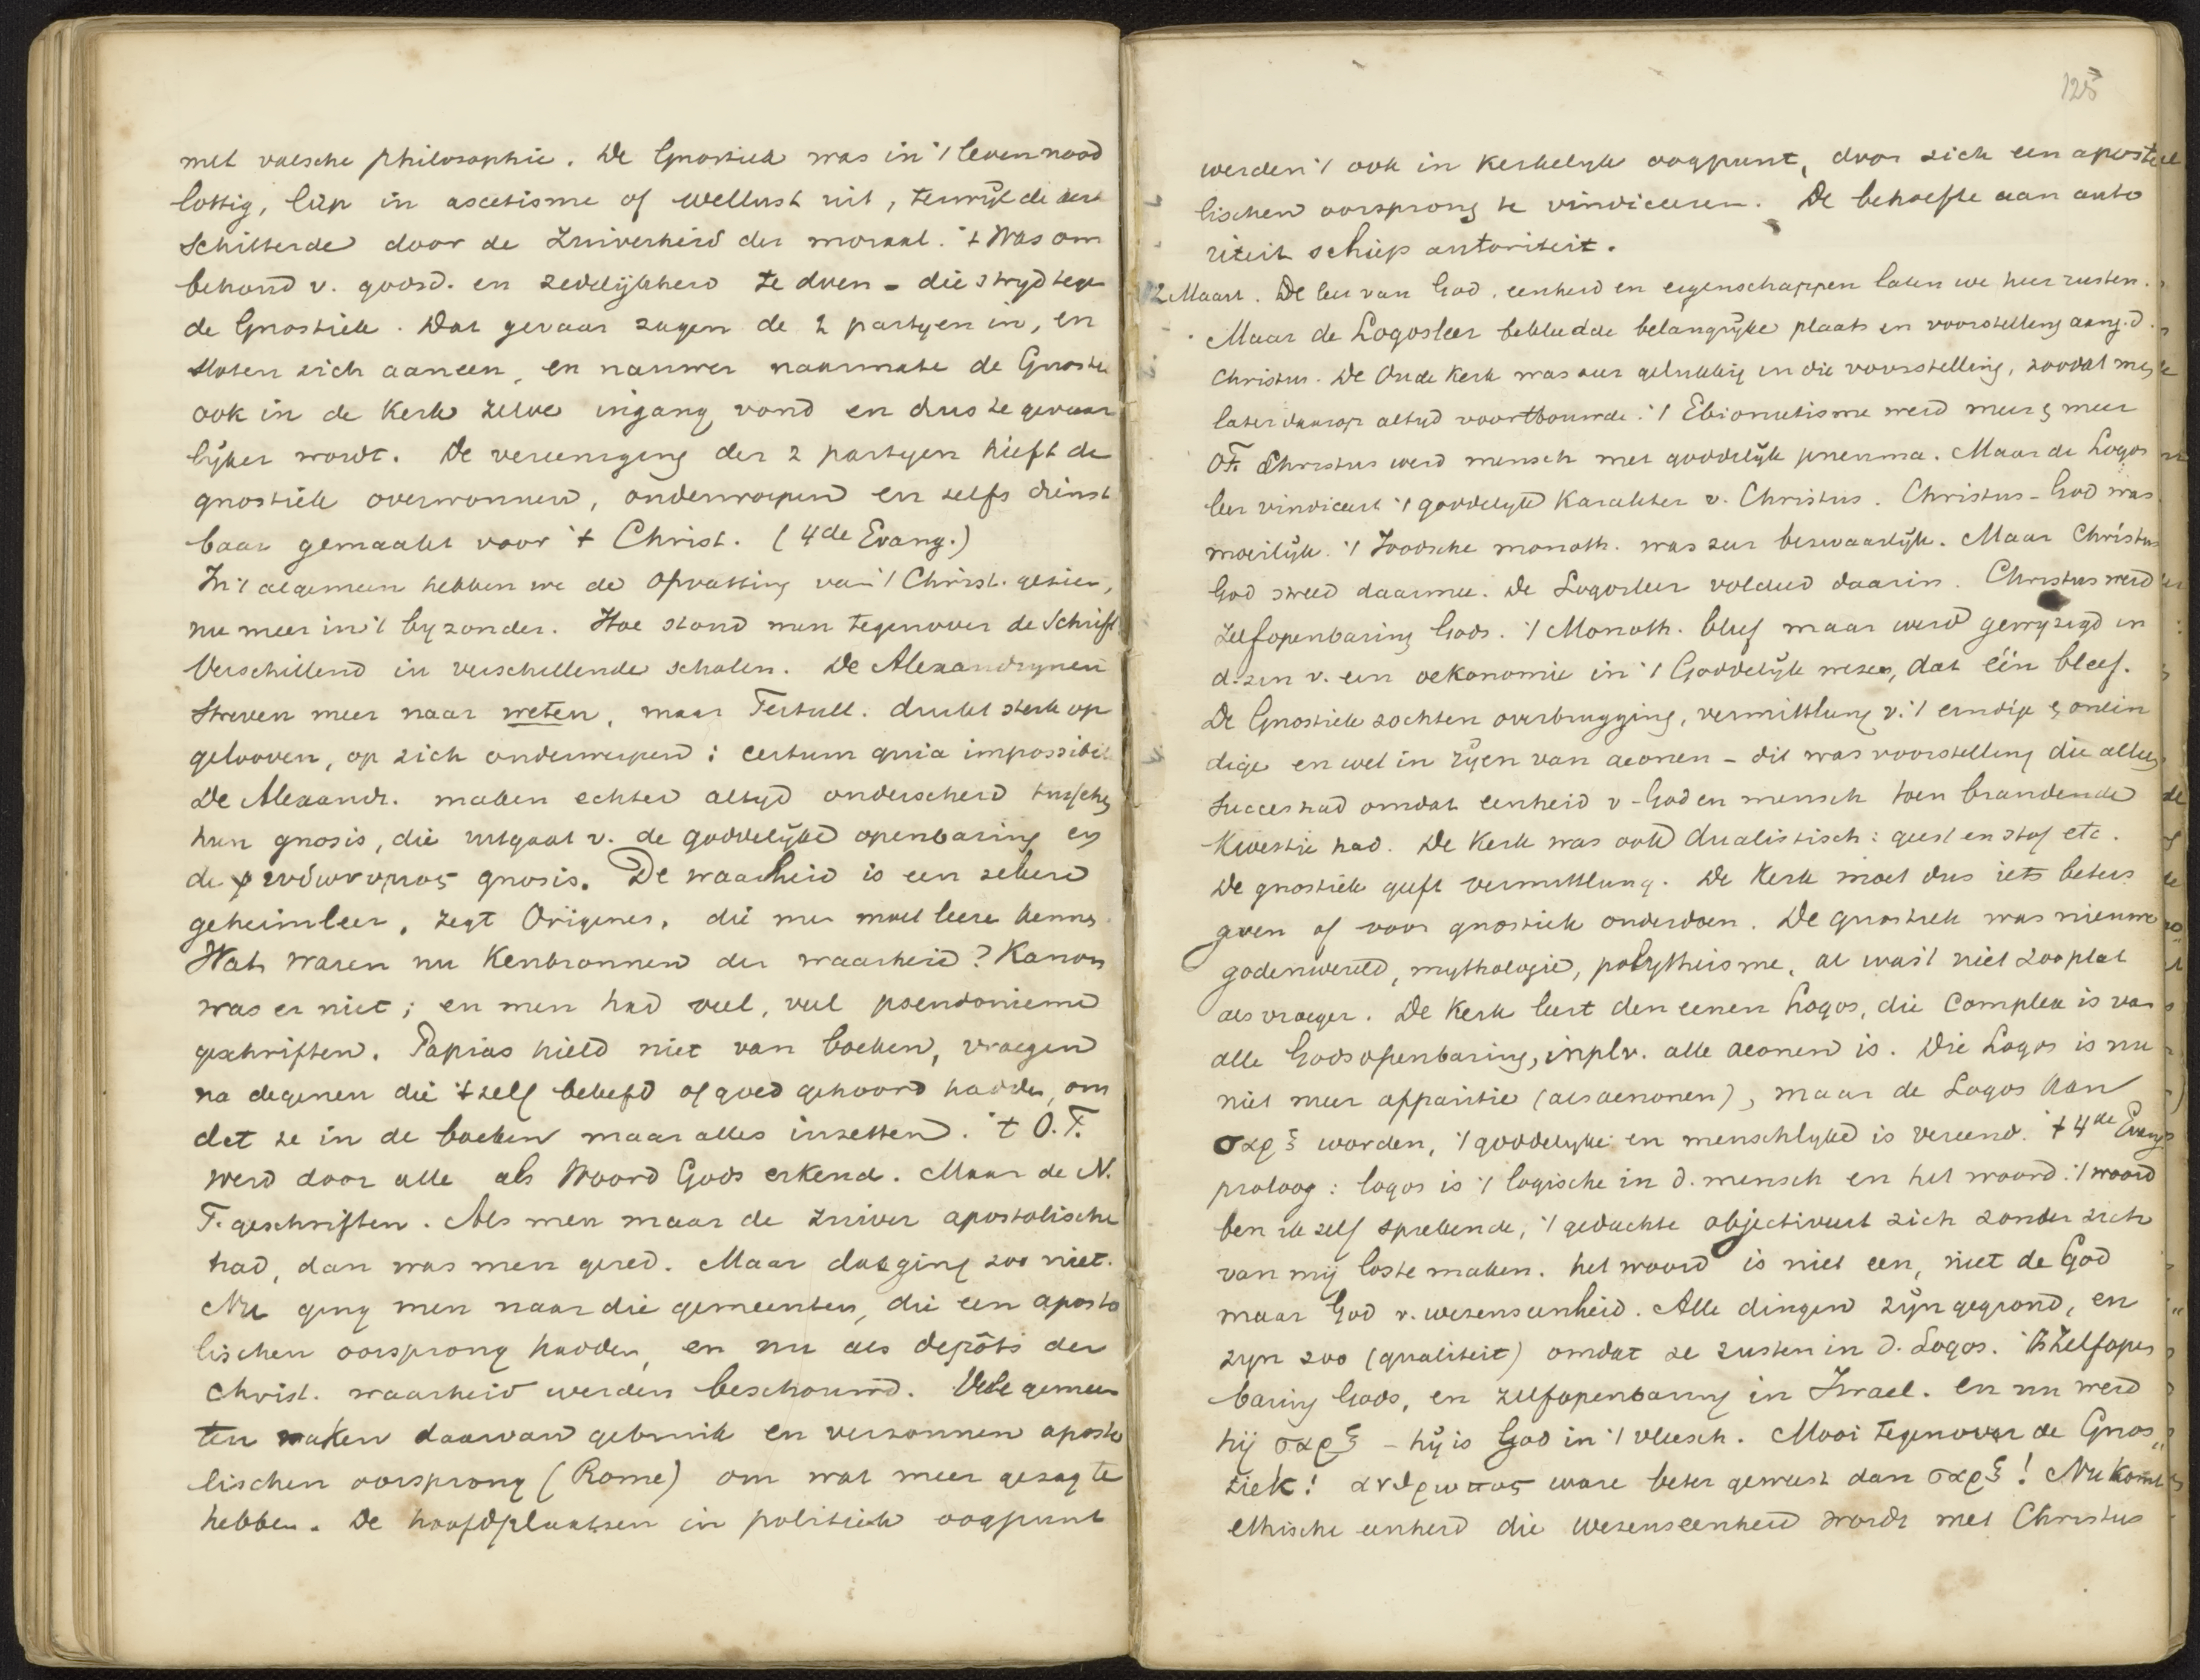 met valsche philosophie. De Gnostiek was in 't leven nood
lottig, liep in ascetisme of wellust uit, terwijl de kerk
schitterde door de zuiverheid der moraal. 't Was om
behoud v. godsd. en zedelijkheid te doen - die strijd tege
de Gnostiek. Dat gevaar zagen de 2 partyen in, en
sloten zich aaneen, en nauwer naarmate de Gnostie
ook in de Kerk zelve ingang vond en dus te gevaar
lijker wordt. De vereeniging der 2 partyen heeft de
gnostiek overwonnen, onderworpen en zelfs dienst
baar gemaakt voor 't Christ. (4de Evang.)
In 't algemeen hebben we de opvatting van 't Christ. gezien,
nu meer in 't byzonder. Hoe stond men tegenover de Schrift
Verschillend in verschillende scholen. De Alexandrynen
streven meer naar weten, maar Tertull. drukt sterk op
gelooven, op zich onderwerpen: certum quia impossibile
De Alexandr. maken echter altyd onderscheid tusschen
hun gnosis, die uitgaat v. de goddelijke openbaring en
de ψευδωνυμος gnosis. De waarheid is een zekere
geheimleer, zegt Origenes, die men moet leere kennen
Wat waren nu Kenbronnen der waarheid? Kanon
was er niet; en men had veel, veel pseudonieme
geschriften. Papias hield niet van boeken, vraegen
na degenen die 't zelf beleefd of goed gehoord hadden, om
dat ze in de boeken maar alles inzetten. 't O.T.
werd door alle als Woord Gods erkend. Maar de N.
T. geschriften. Als men maar de zuiver apostolische
had, dan was men gered. Maar dat ging zoo niet.
Nu ging men naar die gemeenten, die een aposto
lischen oorsprong hadden, en nu als depôts der
Christ. waarheid werden beschouwd. Vele gemeen
ten maken daarvan gebruik en verzonnen aposto
lischen oorsprong (Rome) om wat meer gezag te
hebben. De hoofdplaatsen in politiek oogpunt
125
werden 't ook in Kerkelyk oogpunt, door zich een aposto
lischen oorsprong te vindiceeren. De behoefte aan auto
riteit schiep autoriteit.
12 Maart. De leer van God, eenheid en eigenschappen laten we hier rusten.
Maar de Logosleer bekleedde belangrijke plaats in voorstelling aang. d.
Christus. De Oude Kerk was zeer gelukkig in die voorstelling, zoodat men
later daarop altyd voortbouwde. 't Ebionitisme werd meer & meer
OT. Christus werd mensch met goddelijk pneuma. Maar de Logos
leer vindiceert 't goddelyke Karakter v. Christus. Christus-God was
moeilijk. 't Joodsche monoth. was zeer bezwaarlijk. Maar Christus
God streed daarmee. De Logosleer voldeed daarin. Christus werd
zelfopenbaring Gods. 't Monoth. bleef maar werd gewijzigd in
d. zin v. een oekonomie in 't Goddelijk wezen, dat één bleef.
De Gnostiek zochten overbrugging, vermittlung v. 't eindige & onein
dige en wel in rijen van aeonen - dit was voorstelling die alleen
succes had omdat eenheid v. God en mensch toen brandende
Kwestie had. De Kerk was ook dualistisch: geest en stof etc.
De gnostiek geeft vermittlung. De Kerk moet dus iets beters
geven of voor gnostiek onderdoen. De gnostiek was nieuwe
godenwereld, mythologie, polytheisme, al was 't niet zoo plat
als vroeger. De Kerk leert den eenen Logos, die complex is van
alle Godsopenbaring, inplv. alle aeonen is. Die Logos is nu
niet meer apparitie (als aeonen), maar de Logos kan
σαρξ worden, 't goddelyke en menschlyke is vereend. 't 4de Evang
proloog: logos is 't logische in d. mensch en het woord. 't woord
ben ik zelf sprekende, 't gedachte objectiveert zich zonder zich
van mij los te maken. het woord is niet een, niet de God
maar God v. wezenseenheid. Alle dingen zijn gegrond, en
zijn zoo (qualiteit) omdat ze rusten in d. Logos. 't Is Zelfopen
baring Gods, en zelfopenbaring in Israel. en nu werd
hij σαρξ - hij is God in 't vleesch. Mooi tegenover de Gnos„
tiek! ανθρωπος ware beter geweest dan σαρξ! Nu komt
ethische eenheid die wezenseenheid wordt met Christus